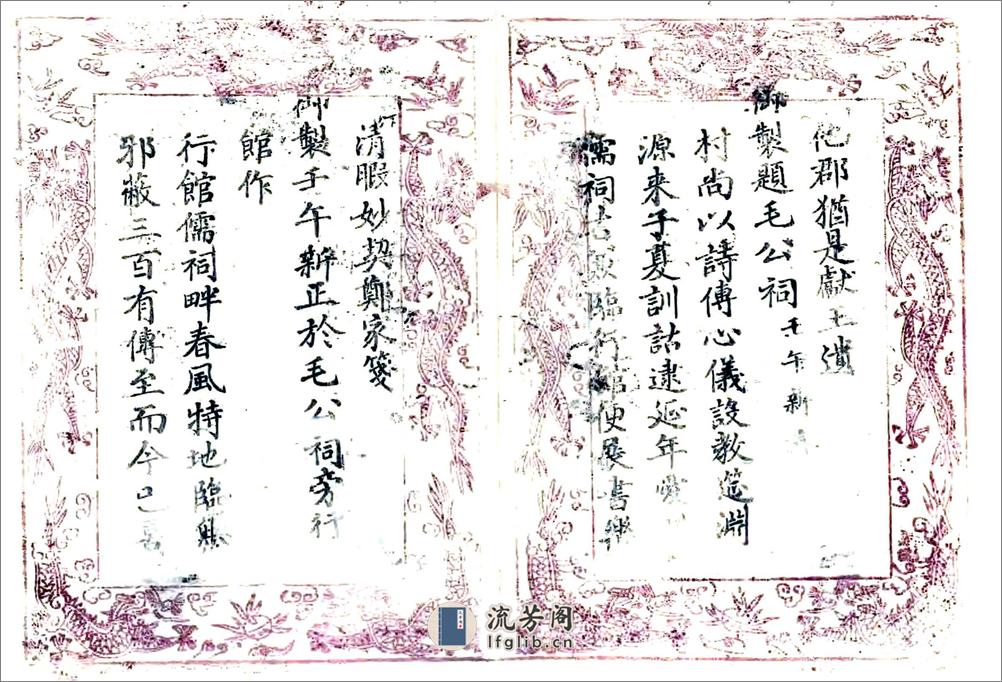 他郡猶是獻王遺
御製題毛公祠壬午新
村尚以詩傳心儀設教筵淵
源來子夏訓詁逮延年
儒祠 臨行館便展書樂
清暇妙契鄭家箋
御製壬午辦正於毛公祠旁行
館作
行館儒祠畔春風特地臨
邪蔽三百有傳至而今
流芳阁
lfglib.cn